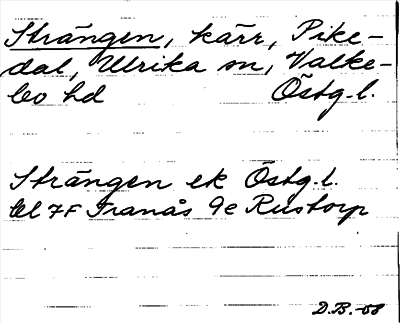 Strängen, kärr, Pike-
dal, Ulrika sn, Valke-
bo hd Östg.l.
Strängen ek Östg.l.
bl 7F Tranås 9e Rustorp
D.B.-58